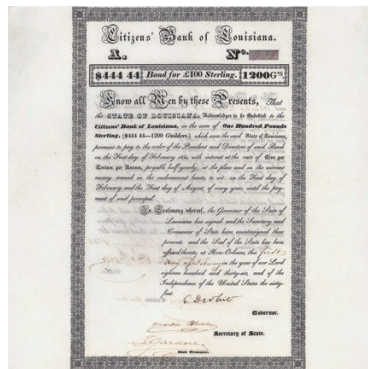 Citizens' Bank of Louisiana.
A. No.
$444 44 Bond for £100 Sterling. 1200 Gs.
Know all Men by these Presents, That
the STATE OF LOUISIANA, Acknowledges to be Indebted to the
Citizens' Bank of Louisiana, in the sum of One Hundred Pounds
Sterling, ($444 44—1200 Guilders,) which sum the said State of Louisiana,
promises to pay to the order of the President and Directors of said Bank
on the First day of February with interest at the rate of Five per
Centum per Annum, payable half yearly, at the place and in the current
money named in the endorsement hereto, to wit: on the First day of
February and the First day of August, of every year, until the pay-
ment of said principal.
In Testimony whereof, the Governor of the State of
Louisiana has signed and the Secretary and
Treasurer of State have countersigned these
presents and the Seal of the State has been
affixed thereto, at New-Orleans, this first
day of February in the year of our Lord
eighteen hundred and thirty-six, and of the
Independence of the United States the sixty
Governor.
Secretary of State.
State Treasurer.